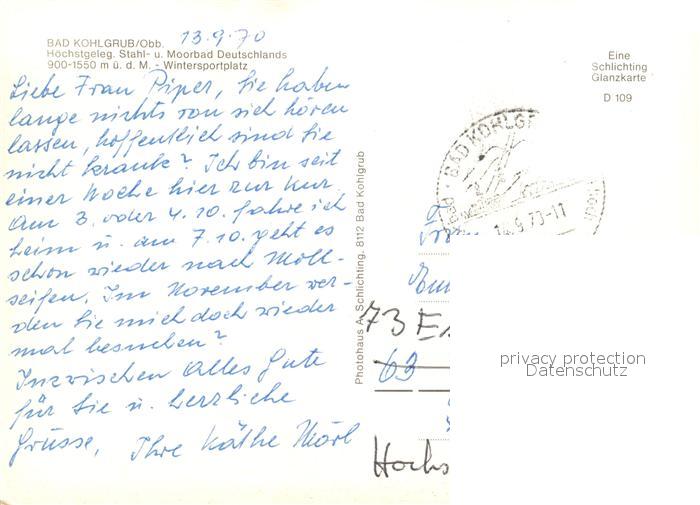 13.9.70
BAD KOHLGRUB/Obb.
Höchstgeleg. Stahl- u. Moorbad Deutschlands
900-1550 m ü. d. M. - Wintersportplatz
Liebe Frau Piper, Sie haben
lange nichts von sich hören
lassen, hoffentlich sind Sie
nicht krank? Ich bin seit
einer Woche hier zur Kur.
Am 3. oder 4.10. fahre ich
heim u. am 7.10. geht es
schon wieder nach Moll-
seifen. Im November wer-
den Sie mich doch wieder
mal besuchen?
Inzwischen alles Gute
für Sie u. herzliche
Grüsse, Ihre Käthe Mörl
Photohaus A. Schlichting, 8112 Bad Kohlgrub
Eine
Schlichting
Glanzkarte
D 109
BAD KOHLGR
14.9.70-11
73 E
63
Hochs
privacy protection
Datenschutz